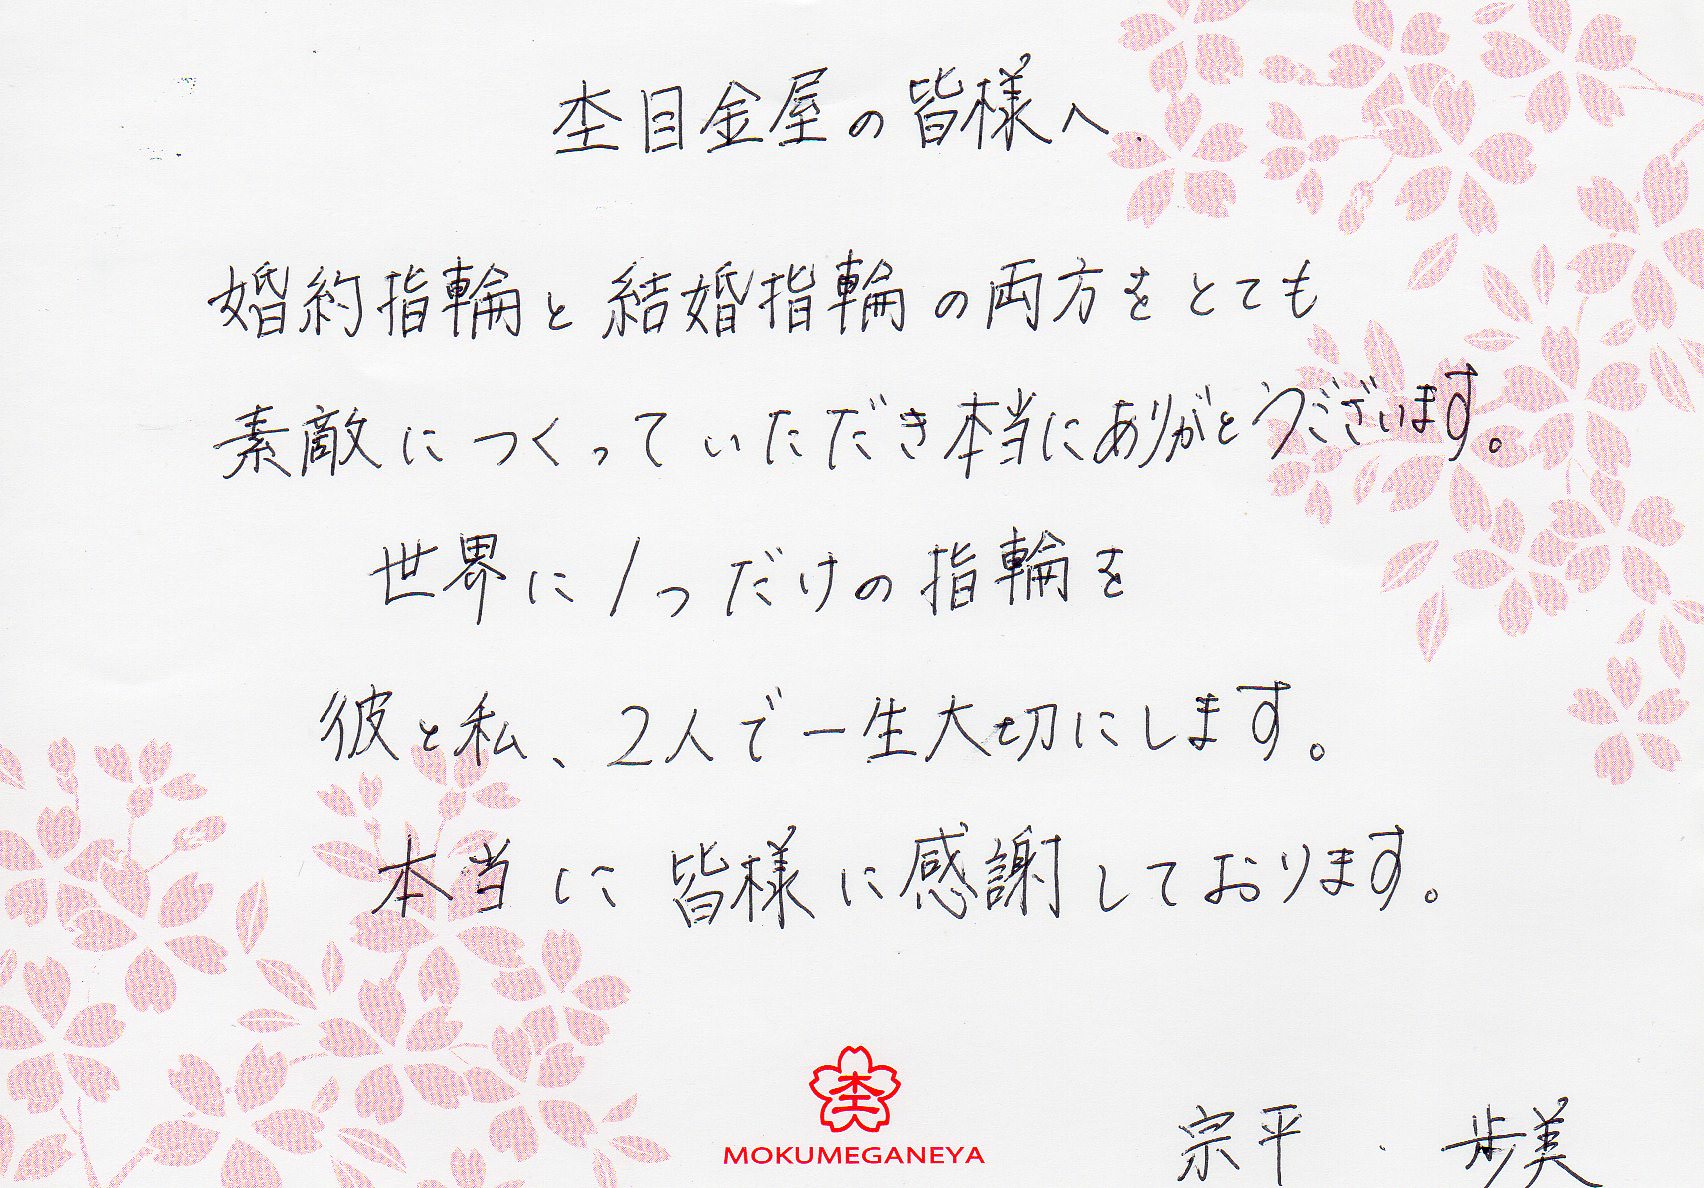 杢目金屋の皆様へ.
婚約指輪と結婚指輪の両方をとても
素敵につくっていただき本当にありがとうございます。
世界に1つだけの指輪を
彼と私、2人で一生大切にします。
本当に皆様に感謝しております。
杢
MOKUMEGANEYA
宗平 . 歩美